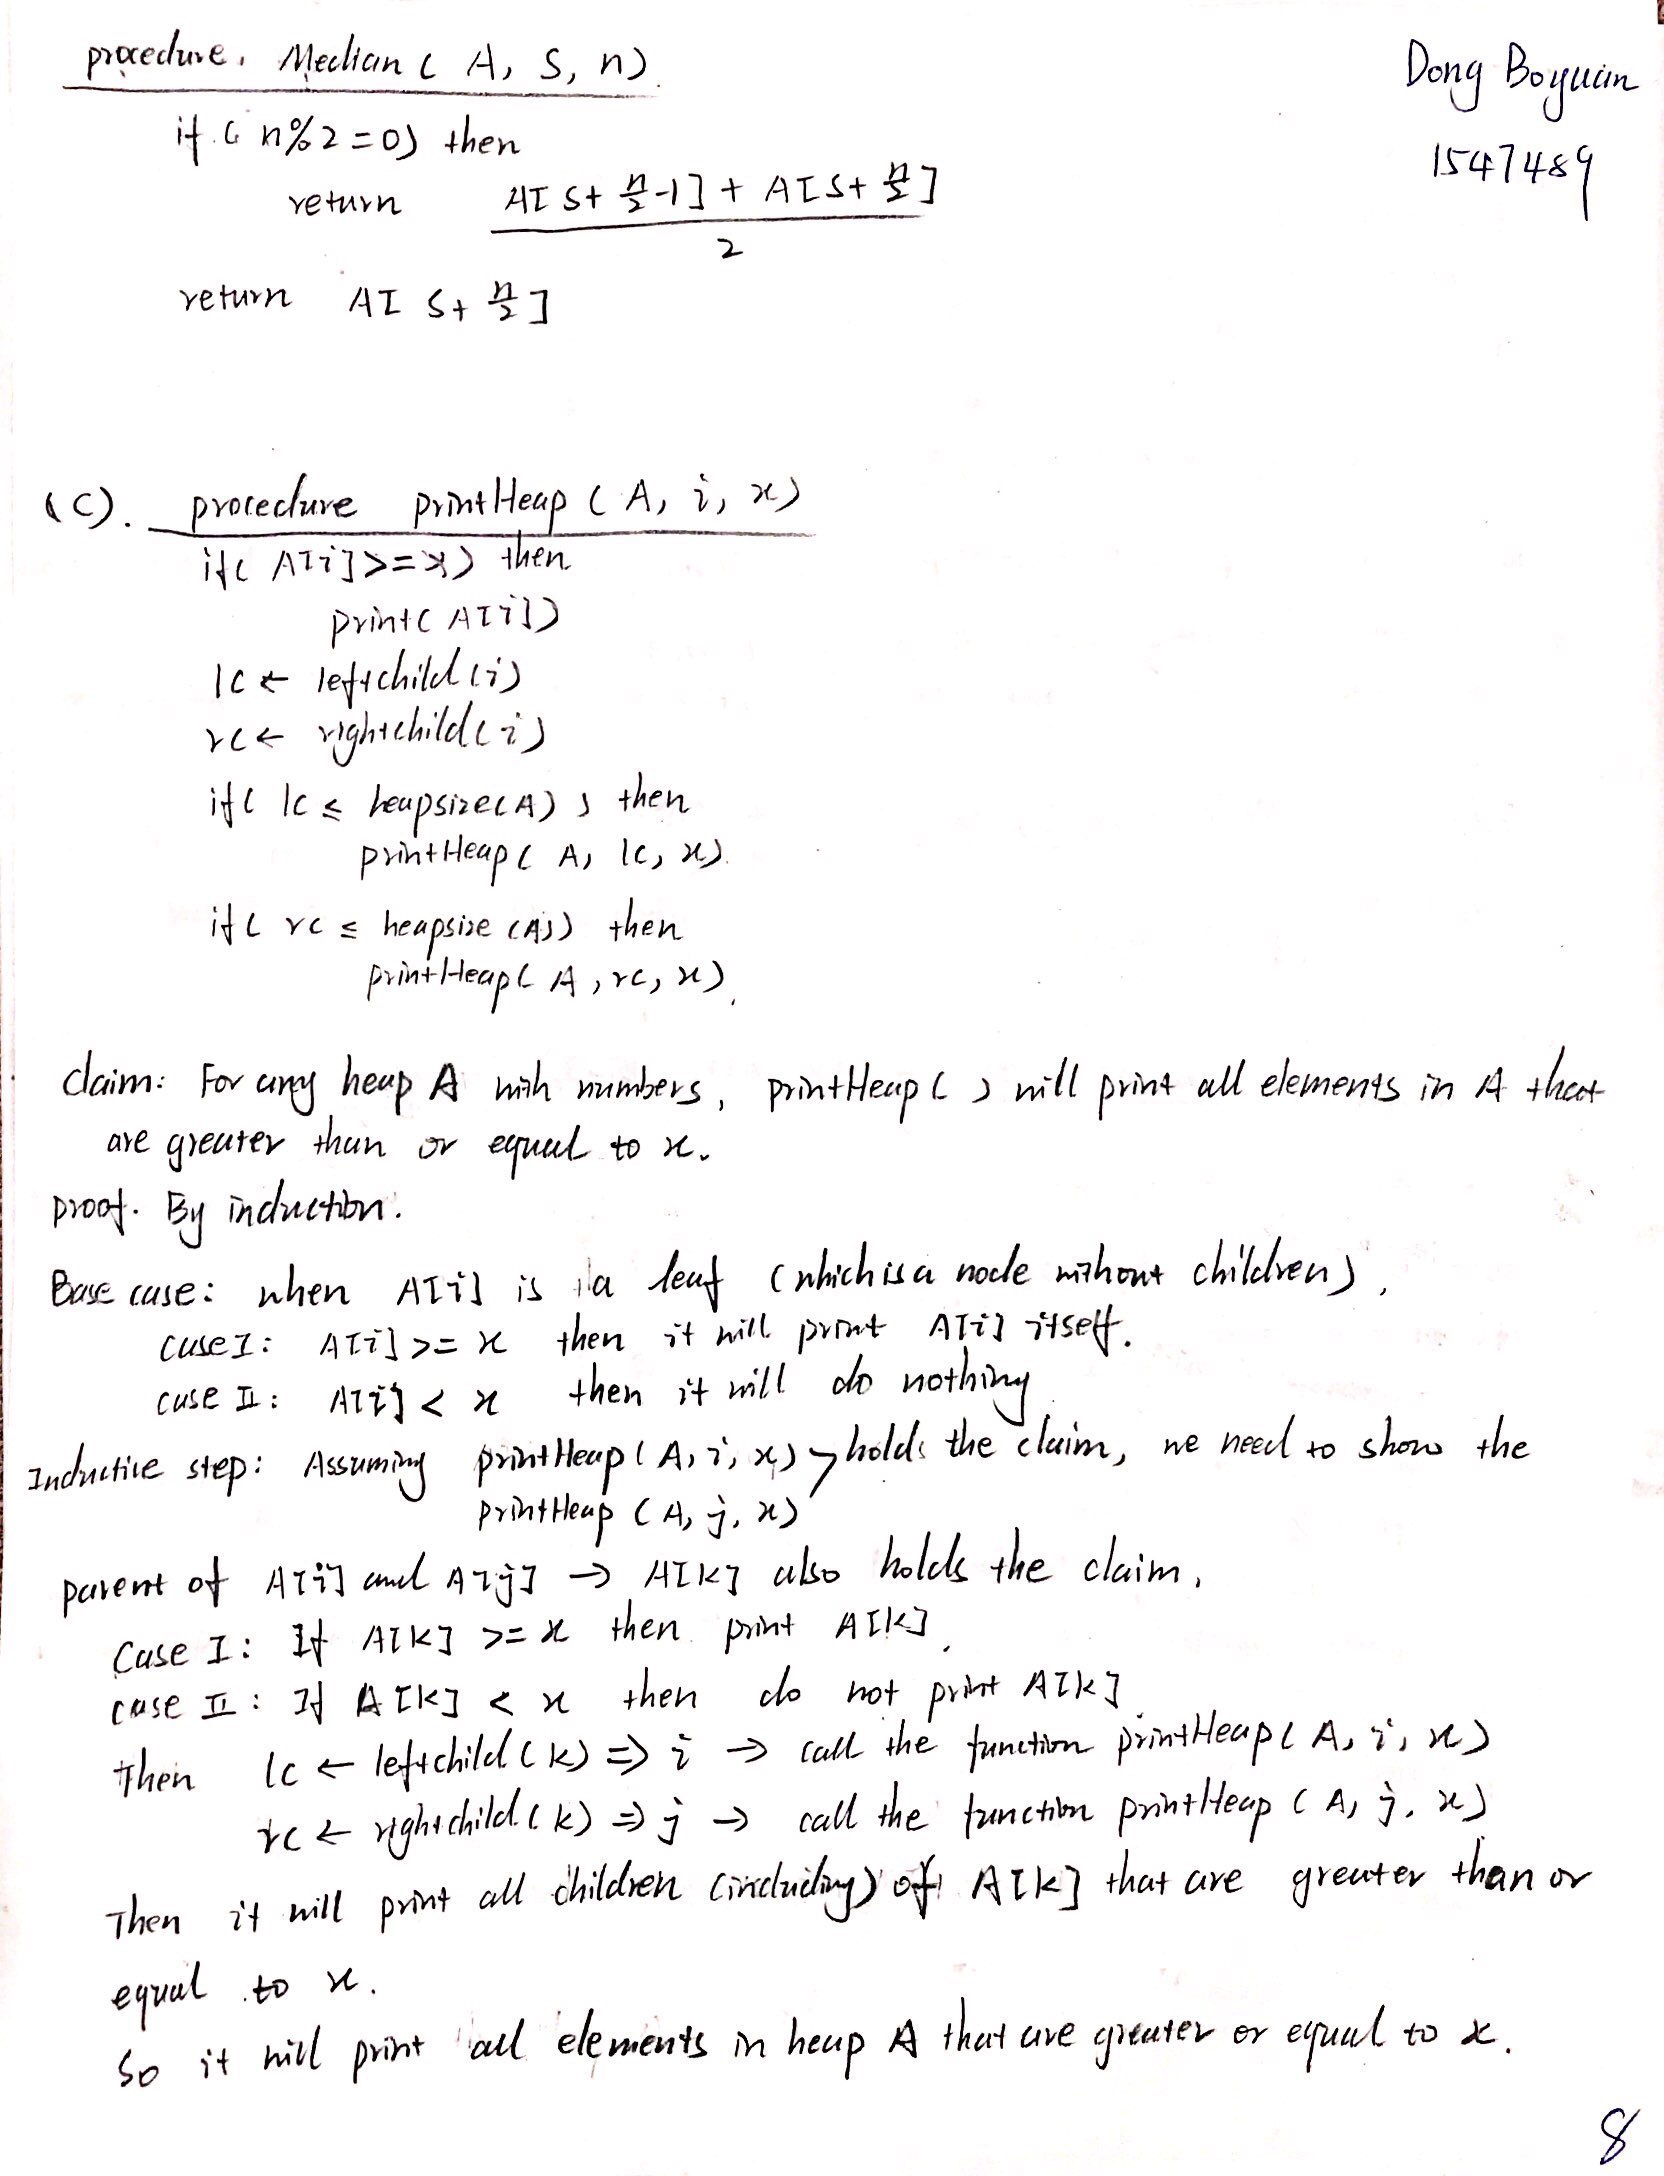 procedure. Median ( A, S, n)
Dong Boyuan
if ( n%2=0) then
1547489
return A[ S+ n/2 -1] + A[S+ n/2 ]
2
return A[ S+ n/2 ]
(C). procedure printHeap ( A, i, x)
if( A[i]>=x) then
print( A[i])
lc ← leftchild (i)
rc ← rightchild( i)
if( lc ≤ heapsize(A) ) then
printHeap ( A, lc, x).
if( rc ≤ heapsize (A)) then
printHeap( A, rc, x).
claim: For any heap A with numbers, printHeap ( ) will print all elements in A that
are greater than or equal to x.
proof. By induction.
Base case: when A[i] is a leaf (which is a node without children),
case I: A[i] >= x then it will print A[i] itself.
case II: A[i] < x then it will do nothing
Inductive step: Assuming printHeap( A, i, x) holds the claim, we need to show the
printHeap ( A, j, x)
parent of A[i] and A[j] → A[k] also holds the claim.
Case I: If A[k] >= x then print A[k].
case II: If A[k] < x then do not print A[k]
Then lc ← leftchild ( k) ⇒ i → call the function printHeap( A, i, x)
rc ← rightchild ( k) ⇒ j → call the function printHeap ( A, j, x)
Then it will print all children (including) of A[k] that are greater than or
equal to x.
So it will print all elements in heap A that are greater or equal to x.
8